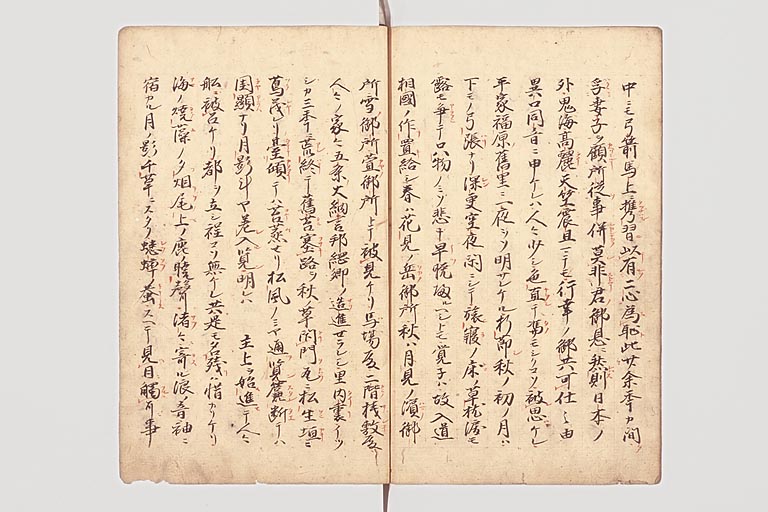 中ニモ弓箭馬上携習以有二心為恥此廿余年カ間
孚妻子ヲ顧所従事併莫非君御恩ニ然則日本ノ
外鬼海高麗天竺震旦ニテモ行幸ノ御共可仕之由
異口同音ニ申ケレハ人々少シ色直テ馮モシケニソ被思ケレ
平家福原舊里ニ一夜ヲソ明サレケル折節秋ノ初ノ月ハ
下モノ弓張ナリ深更空夜閑ニシテ旅寝ノ床ノ草枕露モ
露モ争テロハ物ノミソ悲キ早晩歸ルヘシトモ覚子ハ故入道
相國ノ作置給シ春ハ花見ノ岳御所秋ハ月見ノ濱御
所雪御所萱御所トテ被見ケリ馬場殿二階桟敷殿
人々ノ家々五条大納言邦綱卿ノ造進セラレシ里内裏イツ
シカ三年ニ荒終テ舊苔塞路ヲ秋ノ草閉門瓦ニ松生垣ニ
蔦茂リ臺傾テハ苔蒸セリ松風ノミヤ通覧簾断テハ
閨顕ナリ月影斗ヤ差入覧明レハ 主上ヲ始進テ人々
船ニ被召ケリ都ヲ立シ程コソ無ケレ共是モ名残ハ惜カリケリ
海ノ焼藻ノタ烟尾上ノ鹿暁聲渚々ニ寄ル浪音袖ニ
宿カル月ノ影千草ニスタク蟋蟀ノ蛬スヘテ見目觸耳事